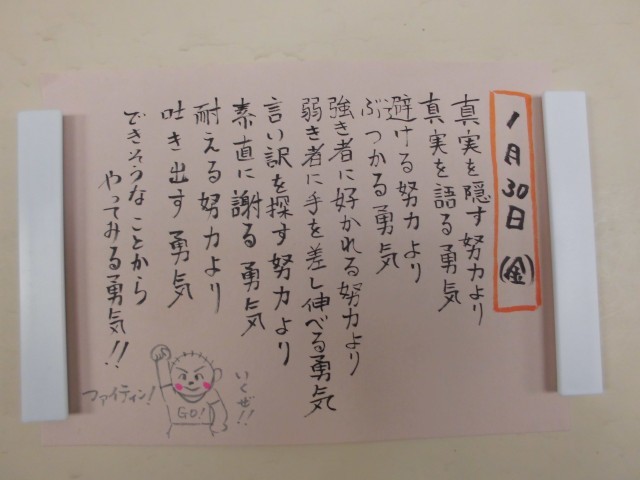 1月30日(金)
真実を隠す努力より
真実を語る勇気
避ける努力より
ぶつかる勇気
強き者に好かれる努力より
弱き者に手を差し伸べる勇気
言い訳を探す努力より
素直に謝る勇気
耐える努力より
吐き出す勇気
できそうなことから
やってみる勇気!!
いくぜ!!
GO!
ファイティン!